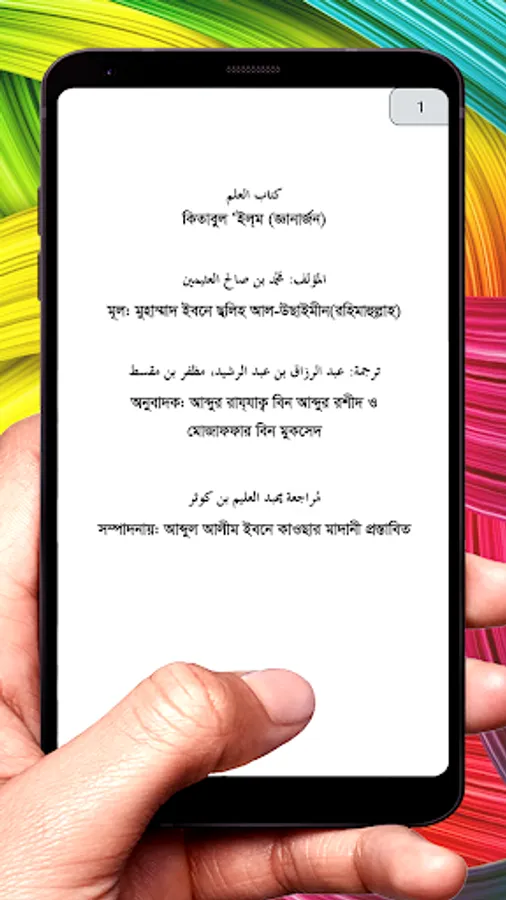 1
كتاب العلم
কিতাবুল 'ইল্ম (জ্ঞানার্জন)
المؤلف: محمد بن صالح العثيمين
মূল: মুহাম্মাদ ইবনে ছ্বলিহ আল-উছাইমীন(রহিমাহুল্লাহ)
ترجمة: عبد الرزاق بن عبد الرشيد، مظفر بن مقسط
অনুবাদক: আব্দুর রায্যাক্ব বিন আব্দুর রশীদ ও
মোজাফফার বিন মুকসেদ
مُراجعة عبد العليم بن كوثر
সম্পাদনায়: আব্দুল আলীম ইবনে কাওছার মাদানী প্রস্তাবিত